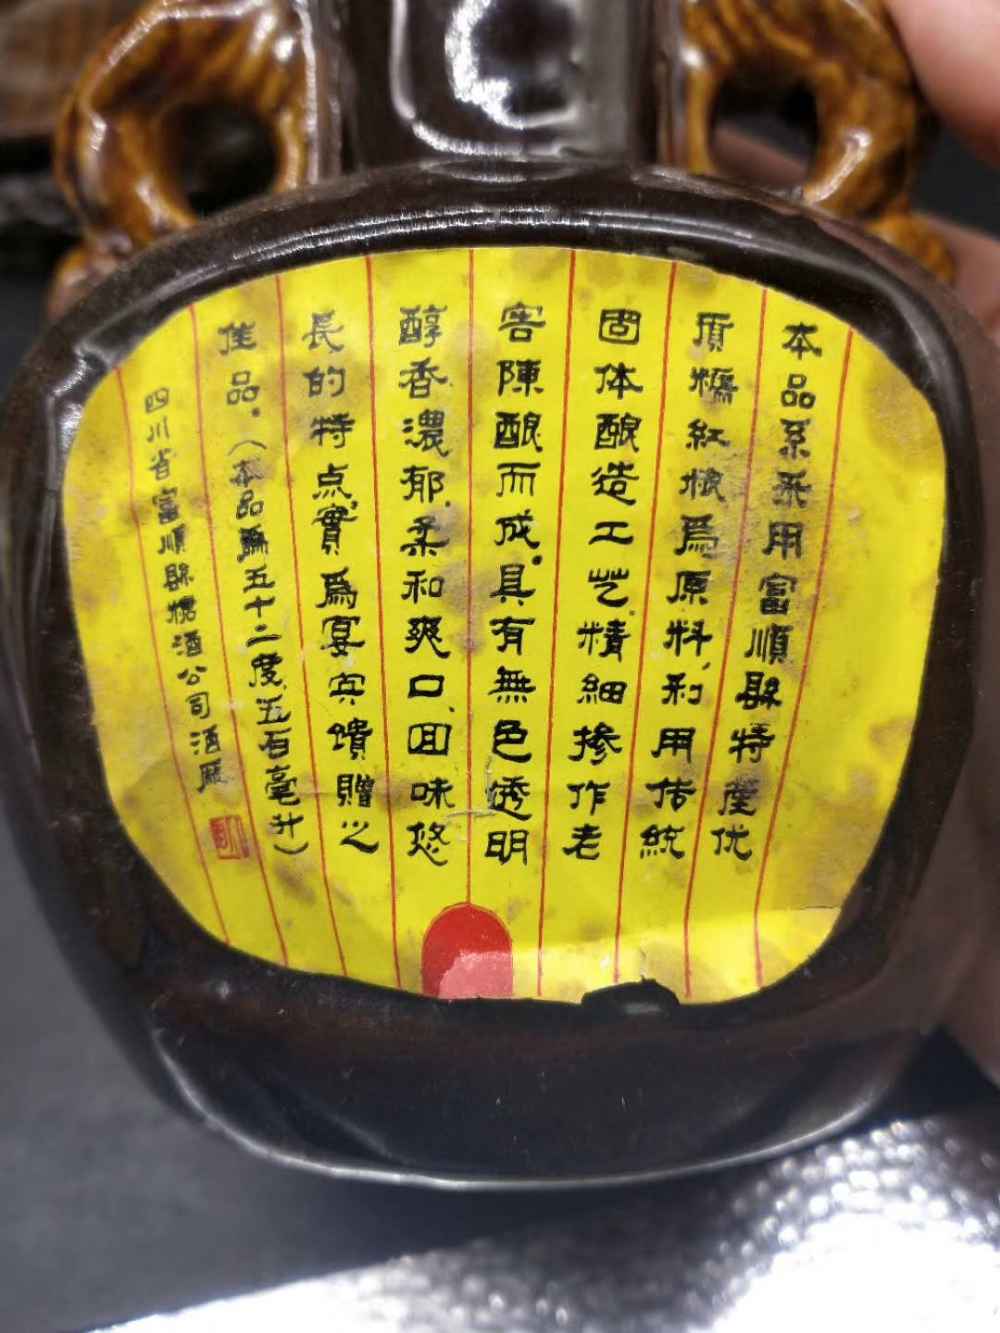 本品系采用富順縣特產优
质糯红粮爲原料,利用传統
固体酿造工艺.精細掺作老
窖陳酿而成.具有無色透明
醇香濃郁.柔和爽口、回味悠
長的特点,實爲宴宾饋贈之
佳品.(本品爲五十二度.五百毫升)
四川省富順縣糖酒公司酒厰